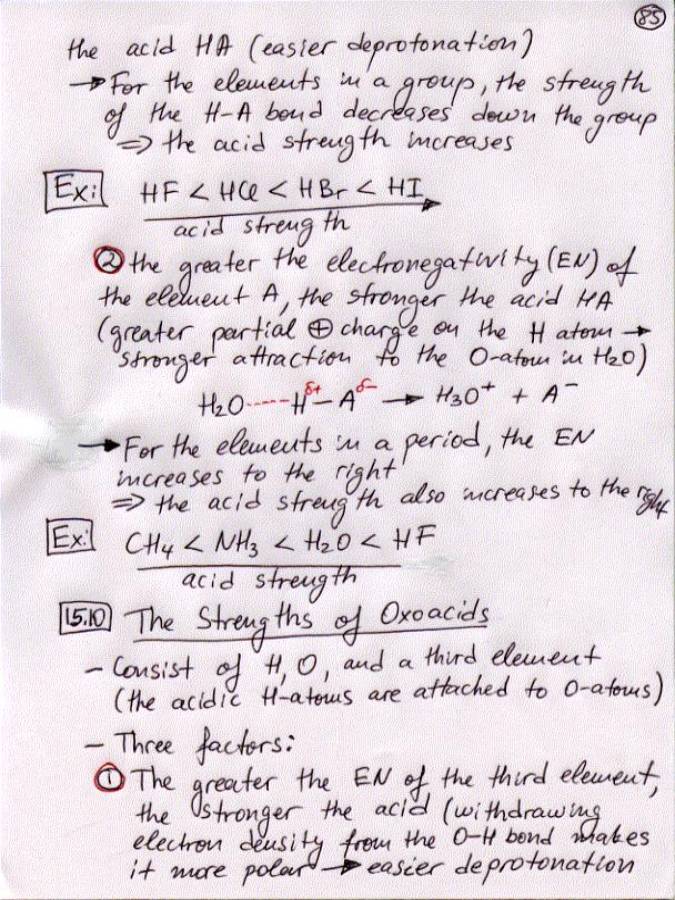 85
the acid HA (easier deprotonation)
→ For the elements in a group, the strength
of the H-A bond decreases down the group
⇒ the acid strength increases
Ex: HF < HCl < HBr < HI
acid strength
② the greater the electronegativity (EN) of
the element A, the stronger the acid HA
(greater partial ⊕ charge on the H atom →
stronger attraction to the O-atom in H₂O)
H₂O-----H^δ+–A^δ- → H₃O⁺ + A⁻
→ For the elements in a period, the EN
increases to the right
⇒ the acid strength also increases to the right
Ex: CH₄ < NH₃ < H₂O < HF
acid strength
15.10 The Strengths of Oxoacids
– Consist of H, O, and a third element
(the acidic H-atoms are attached to O-atoms)
– Three factors:
① The greater the EN of the third element,
the stronger the acid (withdrawing
electron density from the O-H bond makes
it more polar → easier deprotonation